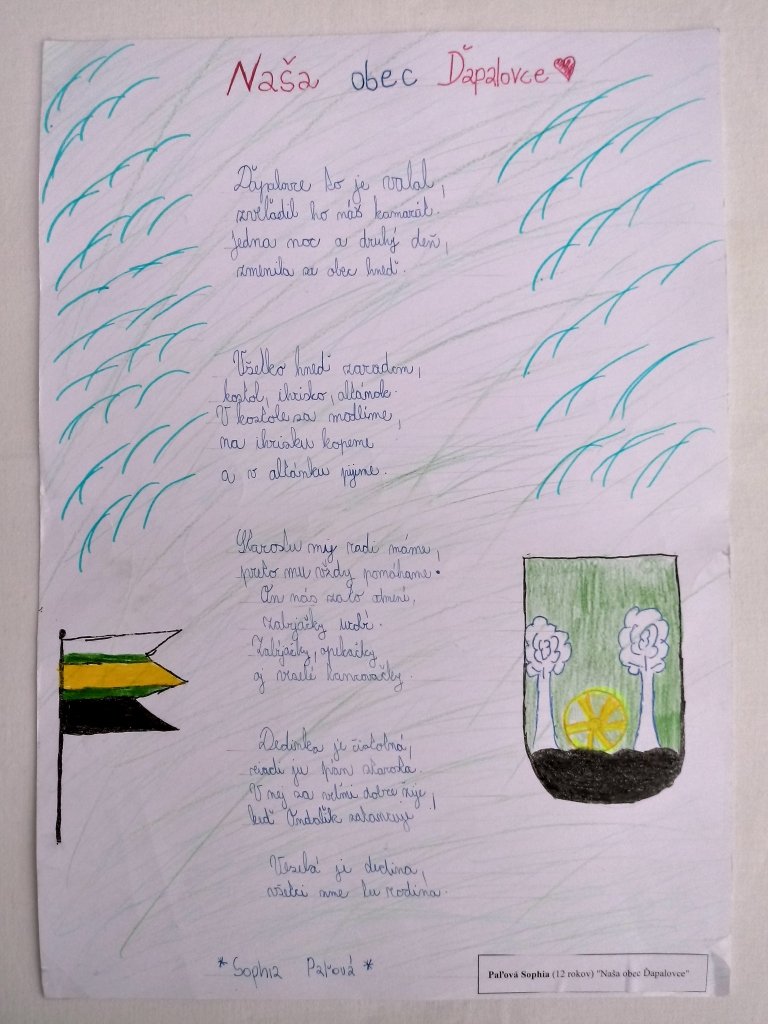 Naša obec Ďapalovce
Ďapalovce to je valal,
zveľadil ho náš kamarát.
Jedna noc a druhý deň,
zmenila sa obec hneď.
Všetko hneď zaradom,
kostol, ihrisko, altánok.
V kostole sa modlíme,
na ihrisku kopeme
a v altánku pijime.
Starostu my radi máme,
preto mu vždy pomáhame.
On nás zato odmení,
zabíjačky urobí.
Zabíjačky, opekačky
aj veselé tancovačky.
Dedinka je čistotná,
riadi ju pán starosta.
V nej sa veľmi dobre žije,
keď Ondalík zatancuje
Veselá je dedina,
všetci sme tu rodina.
*Sophia Paľová*
Paľová Sophia (12 rokov) "Naša obec Ďapalovce"